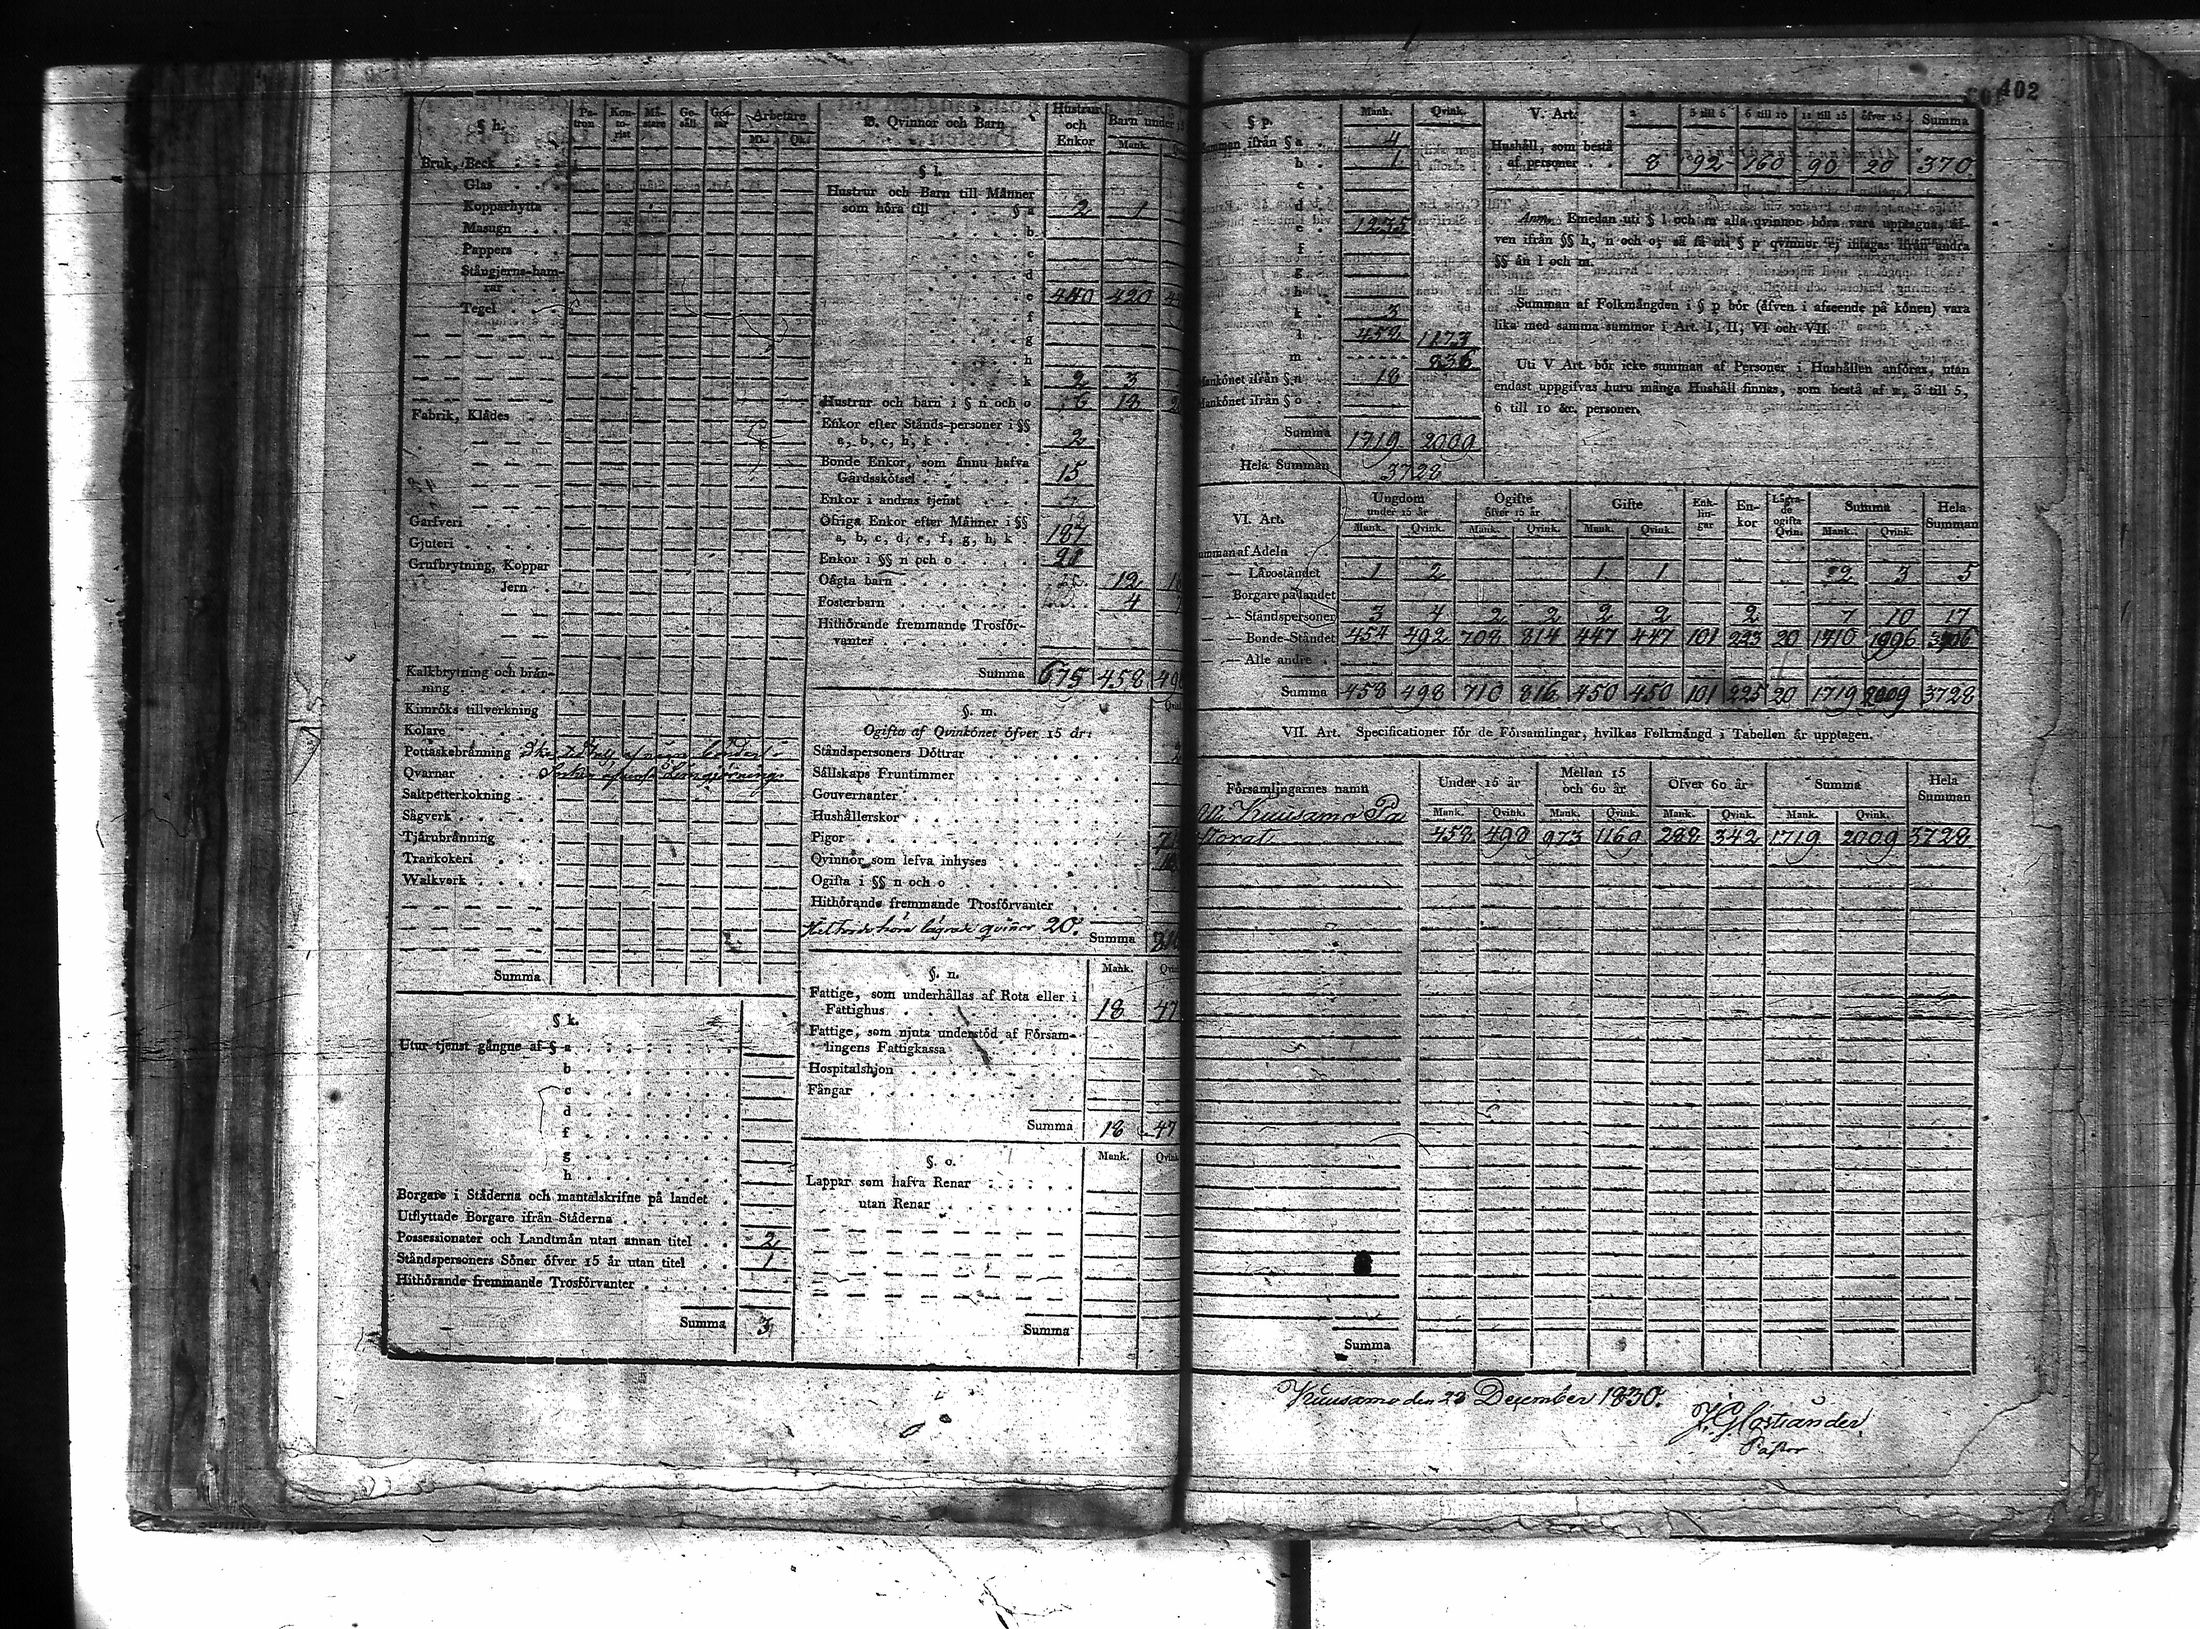 402
§ h.
Patron
Kontorist
Mästare
Gesäll
Gossar
Arbetare
Mk.
Qk.
Bruk, Beck
Glas
Kopparhytta
Masugn
Pappers
Stångjerns-hamrar
Tegel
Fabrik, Klädes
Garfveri
Gjuteri
Grufbrytning, Koppar
Jern
Kalkbrytning och bränning
Kimröks tillverkning
Kolare
Pottaskebränning
Qvarnar
Saltpetterkokning
Sågverk
Tjärubränning
Trankokeri
Walkverk
Summa
§ k.
Utur tjenst gångne af § a
b
c
d
f
g
h
Borgare i Städerna och mantalskrifne på landet
Utflyttade Borgare ifrån Städerna
Possessionater och Landtmän utan annan titel 2
Ståndspersoners Söner öfver 15 år utan titel 1
Hithörande fremmande Trosförvanter
Summa 3
B. Qvinnor och Barn
Hustrur och Enkor
Barn under 15
Mank.
§ l.
Hustrur och Barn till Männer
som höra till § a 2 1
b
c
d
e 440 420
f
g
h
k 2 3
Hustrur och barn i § n och o 6 18
Enkor efter Stånds-personer i §§
a, b, c, h, k 2
Bonde Enkor, som ännu hafva
Gårdsskötsel 15
Enkor i andras tjenst
Öfriga Enkor efter Männer i §§
a, b, c, d, e, f, g, h, k 187
Enkor i §§ n och o
Oägta barn 12
Fosterbarn 4
Hithörande fremmande Trosförvanter
Summa 675 458
§. m.
Ogifta af Qvinkönet öfver 15 år:
Ståndspersoners Döttrar 2
Sällskaps Fruntimmer
Gouvernanter
Hushållerskor
Pigor
Qvinnor som lefva inhyses
Ogifta i §§ n och o
Hithörande fremmande Trosförvanter
lägrade qvinor 20.
Summa
§. n.
Mank.
Fattige, som underhållas af Rota eller i
Fattighus 18 47
Fattige, som njuta understöd af Församlingens Fattigkassa
Hospitalshjon
Fångar
Summa 18 47
§. o.
Mank.
Lappar som hafva Renar
utan Renar
Summa
§ p.
Mank. Qvink.
Summan ifrån § a 4
b 1
c
d
e 1235
f
g
h
k 3
l 458 1173
m 836
Mankönet ifrån § n 18
Mankönet ifrån § o
Summa 1719 2009
Hela Summan 3728
V. Art.
2
3 till 5
6 till 10
11 till 15
öfver 15
Summa
Hushåll, som bestå
af personer 8 92 160 90 20 370
Anm. Emedan uti § l och m alla qvinnor böra vara upptagna, äfven ifrån §§ h, n och o; så få uti § p qvinnor ej intagas ifrån andra
§§ än l och m.
Summan af Folkmängden i § p bör (äfven i afseende på könen) vara
lika med samma summor i Art. I, II, VI och VII.
Uti V Art. bör icke summan af Personer i Hushållen anföras, utan
endast uppgifvas huru många Hushåll finnas, som bestå af 2, 3 till 5,
6 till 10 &c. personer.
VI. Art.
Ungdom under 15 år
Ogifte öfver 15 år
Gifte
Enklingar
Enkor
Lägrade ogifta Qvin.
Summa
Hela Summan
Mank. Qvink. Mank. Qvink. Mank. Qvink. Mank. Qvink.
Summan af Adeln
— — Läroståndet 1 2 1 1 2 3 5
— — Borgare på landet
— — Ståndspersoner 3 4 2 2 2 2 2 7 10 17
— — Bonde-Ståndet 454 492 708 814 447 447 101 223 20 1710 1996 3706
— — Alle andre
Summa 458 498 710 816 450 450 101 225 20 1719 2009 3728
VII. Art. Specificationer för de Församlingar, hvilkas Folkmängd i Tabellen är upptagen.
Församlingarnes namn
Under 15 år
Mellan 15 och 60 år
Öfver 60 år
Summa
Hela Summan
Mank. Qvink. Mank. Qvink. Mank. Qvink. Mank. Qvink.
Kuusamo Pa
storat 458 498 973 1169 288 342 1719 2009 3728
Summa
Kuusamo den 23 December 1830.
Pastor